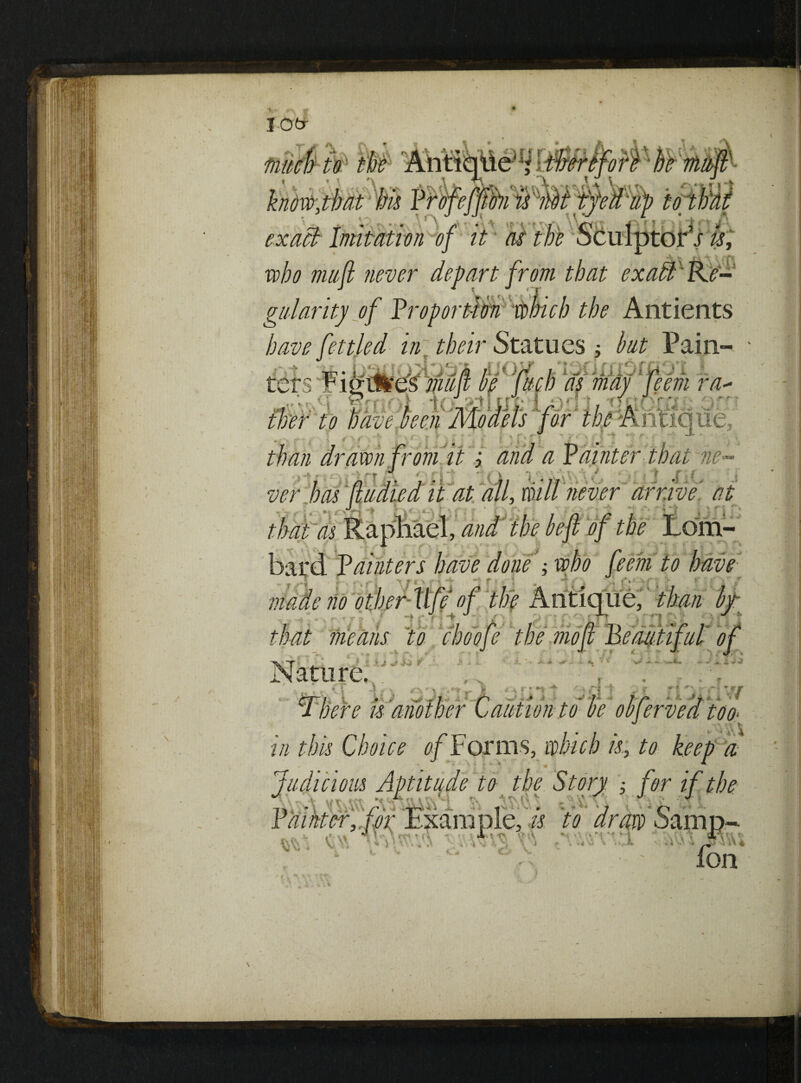 106
much to the Antique; therefore he muſt
know, that his Profeſſion is not tyed up to that
exact Imitation of it as the Sculptor's is,
who muſt never depart from that exact Re-
gularity of Proportion which the Antients
have ſettled in their Statues; but Pain-
ters Figures muſt be ſuch as may ſeem ra-
ther to have been Models for the Antique,
than drawn from it; and a Painter that ne-
ver has ſtudied it at all, will never arrive at
that as Raphael, and the beſt of the Lom-
bard Painters have done; who ſeem to have
made no other Uſe of the Antique, than by
that means to chooſe the moſt Beautiful of
Nature.
There is another Caution to be obſerved too
in this Choice of Forms, which is, to keep a
Judicious Aptitude to the Story; for if the
Painter, for Example, is to draw Samp-
ſon